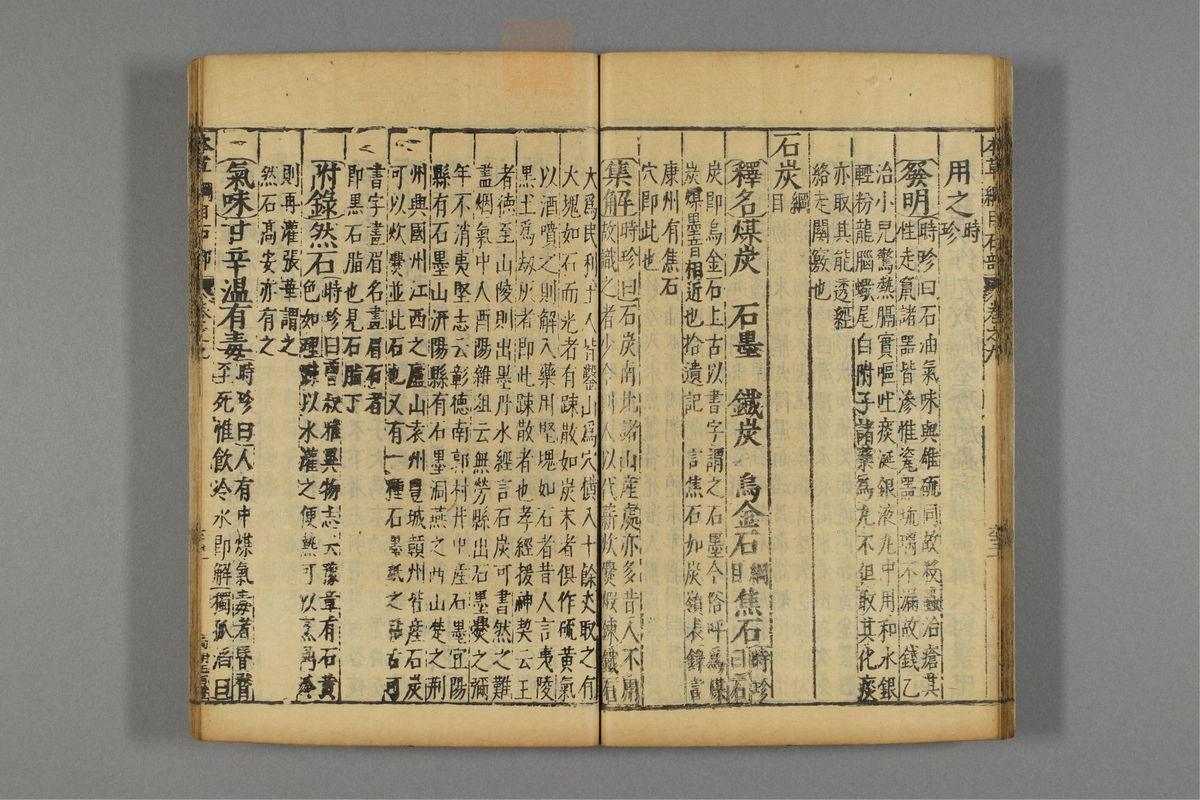 本草綱目石部 卷之九
用之時珍
發明時珍曰石油氣味與雄硫同故殺蟲治瘡其
性走竄諸器皆滲惟瓷器琉璃不漏故錢乙
治小兒驚熱膈實嘔吐痰涎銀液丸中用和水銀
輕粉龍腦蠍尾白附子諸藥為丸不但取其化痰
亦取其能透經
絡走關竅也
石炭綱目
釋名煤炭 石墨 鐵炭 烏金石綱目焦石時珍曰石
炭即烏金石上古以書字謂之石墨今俗呼為煤
炭煤墨音相近也拾遺記言焦石如炭嶺表錄言
康州有焦石
穴即此也
集解時珍曰石炭南北諸山產處亦多昔人不用
故識之者少今則人以代薪炊爨煅鍊鐵石
大為民利土人皆鑿山為穴橫入十餘丈取之有
大塊如石而光者有踈散如炭末者俱作硫黃氣
以酒噴之則解入藥用堅塊如石者昔人言夷陵
黑土為劫灰者即此踈散者也孝經援神契云王
者德至山陵則出墨丹水經言石炭可書然之難
盡烟氣中人酉陽雜俎云無勞縣出石墨爨之彌
年不消夷堅志云彰德南郭村井中產石墨宜陽
縣有石墨山汧陽縣有石墨洞燕之西山楚之荊
州興國州江西之廬山袁州豐城贛州皆產石炭
可以炊爨並此石也又有一種石墨舐之粘舌可
書字畫眉名畫眉石者
即黑石脂也見石脂下
附錄然石時珍曰曹叔雅異物志云豫章有石黃
色如理踈以水灌之便熱可以烹鼎冷
則再灌張華謂之
然石高安亦有之
氣味甘辛溫有毒時珍曰人有中煤氣毒者昏瞀
至死惟飲冷水即解獨孤滔曰
本草綱目石部 卷之九